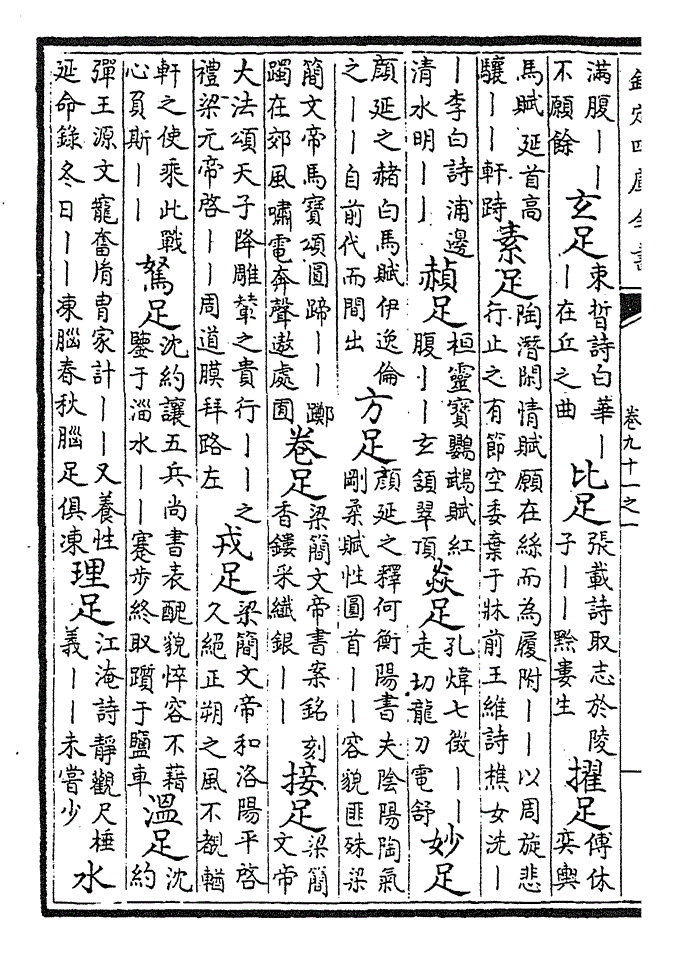 欽定四庫全書 卷九十一之一
滿腹丨丨不願餘 玄足 束晳詩白華丨丨在丘之曲 比足 張載詩取志於陵子丨丨黔婁生 擢足 傅休奕輿
馬賦延首高驤丨丨軒跱 素足 陶潛閑情賦願在絲而為履附丨丨以周旋悲行止之有節空委棄于牀前王維詩樵女洗丨
丨李白詩浦邊清水明丨丨 赬足 桓靈寶鸚鵡賦紅腹丨丨玄頷翠頂 焱足 孔煒七徵丨丨走切龍刀電舒 妙足
顔延之赭白馬賦伊逸倫之丨丨自前代而間出 方足 顔延之釋何衡陽書夫陰陽陶氣剛柔賦性圓首丨丨容貌匪殊梁
簡文帝馬寶頌圓蹄丨丨躑躅在郊風嘯電奔聲遨處囿 卷足 梁簡文帝書案銘刻香鏤采纖銀丨丨 接足 梁簡文帝
大法頌天子降雕輦之貴行丨丨之禮梁元帝啓丨丨周道膜拜路左 戎足 梁簡文帝和洛陽平啓久絕正朔之風不覩輶
軒之使乘此戰心負斯丨丨 駑足 沈約讓五兵尚書表醜貌悴容不藉鑒于淄水丨丨蹇步終取躓于鹽車 溫足 沈約
彈王源文寵奮胤胄家計丨丨又養性延命錄冬日丨丨凍腦春秋腦足俱凍 理足 江淹詩靜觀尺棰義丨丨未嘗少 水